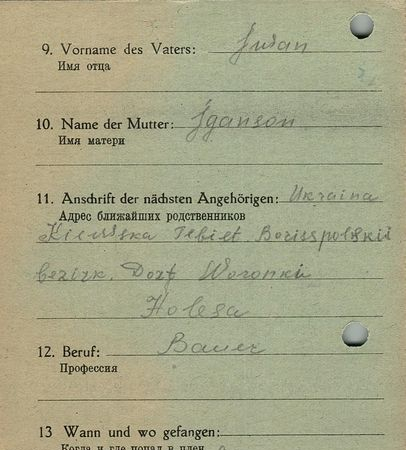 9. Vorname des Vaters: Iwan
Имя отца
10. Name der Mutter:
Имя матери
11. Anschrift der nächsten Angehörigen: Ukraina
Адрес ближайших родственников
Kiewska Gebiet Borisspolskii
bezirk. Dorf Woronki
12. Beruf: Bauer
Профессия
13 Wann und wo gefangen:
Когда и где попал в плен